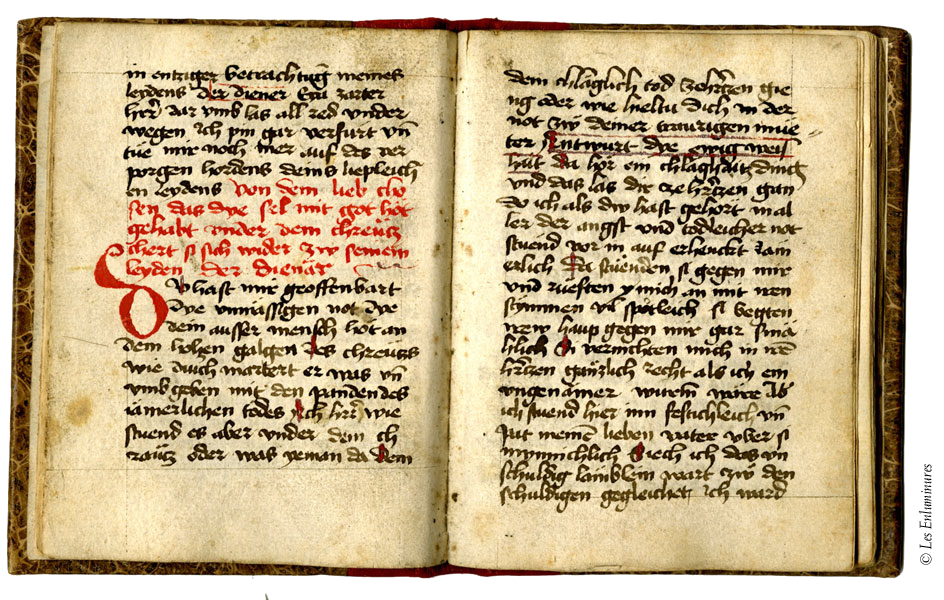 in entziger betrachtūg meines
leydens der diener Eya zarter
herr dar vmb las all red vnder
wegen ich pin gar verfurt vn̄
tue mir noch mer auf des ver
porgen hordens deins lieplich
en leydens Von dem lieb cho
sen das dye sel mit got hot
gehabt vnder dem chreütz
chert si sich wider zw seinem
leyden der dienär
Dv hast mir geoffenbart
dye vnmässigen not dye
dein ausser mensch hot an
dem hohen galgen des chreütz
wie dw gemartert er was vn̄
vmb geben mit den panden des
iämerlichen todes Ach herr wie
stuend es aber vnder dem ch
räutz oder was yeman da dem
dem chläglich tod zehertzen gie
ng oder wie hieltu dich in der
not zw deiner traurigen mue
ter Antwurt dye ewig weis
hait da hör ein chläghaftz
vnd das las dir cze hertzen gan
do ich als dw hast gehort in al
ler der angst vnd todleicher not
stuend vor in auf erhenckt Jam
erlich Da stuenden si gegen mir
vnd rueften y mich an mit iren
stymmen vil spötleich si begten
irew haup gegen mir gar smä
hlich Si vernichten mich in irē
hertzen gäntzlich recht als ich ein
vngenämer wurm wäre Ab
ich stuend hier inn festichleich vn̄
pat meinē lieben vater vber si
mynnichlich Siech ich das vn
schuldig lämblein wart zw den
schuldigen gegleichet ich ward
© Les Enluminures